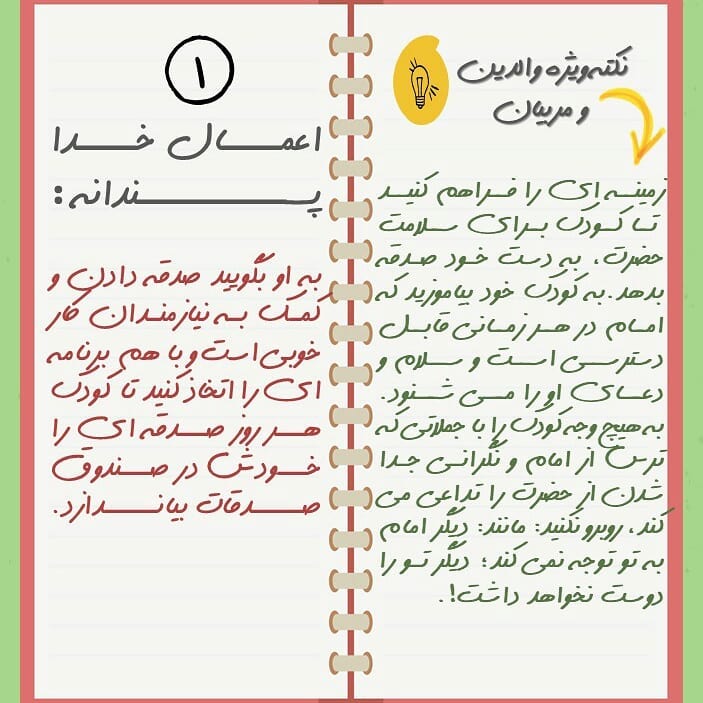 نکته ویژه والدین
و مربیان
زمینه ای را فراهم کنید
تا کودک برای سلامت
حضرت، به دست خود صدقه
بدهد. به کودک خود بیاموزید که
امام در هر زمانی قابل
دسترسی است و سلام و
دعای او را می شنود.
به هیچ وجه کودک را با جملاتی که
ترس از امام و نگرانی جدا
شدن از حضرت را تداعی می
کند، روبرو نکنید: مانند: دیگر امام
به تو توجه نمی کند؛ دیگر تو را
دوست نخواهد داشت!.
۱
اعمال خدا
پسندانه:
به او بگویید صدقه دادن و
کمک به نیازمندان کار
خوبی است و با هم برنامه
ای را اتخاذ کنید تا کودک
هر روز صدقه ای را
خودش در صندوق
صدقات بیاندازد.